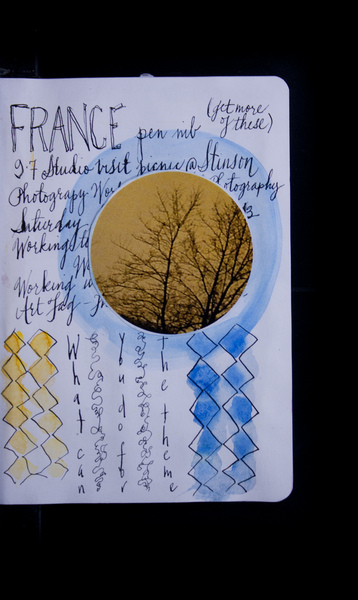 FRANCE pen nib (get more
of these)
9-7 Studio visit picnic @ Stinson
Photograpy Wor Photography
Saturday 3
Working t
W
Working w
Art Log -
What can
you do for
the theme